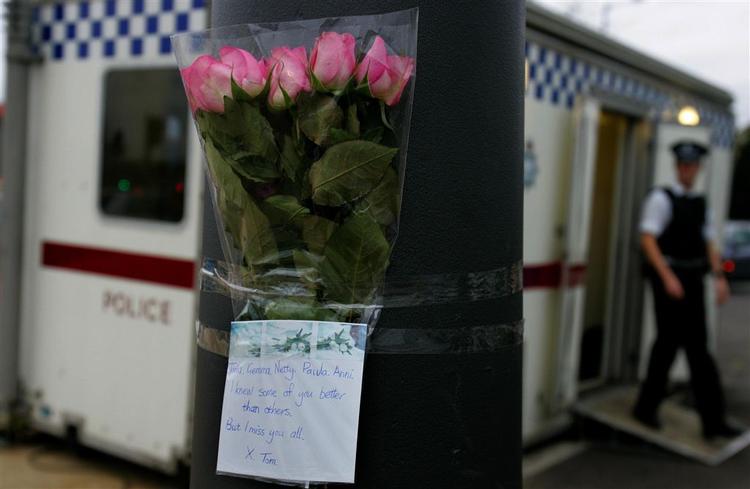 POLICE
Tania. Gemma. Netty. Paula. Anni.
I knew some of you better
than others.
But I miss you all.
X. Tom